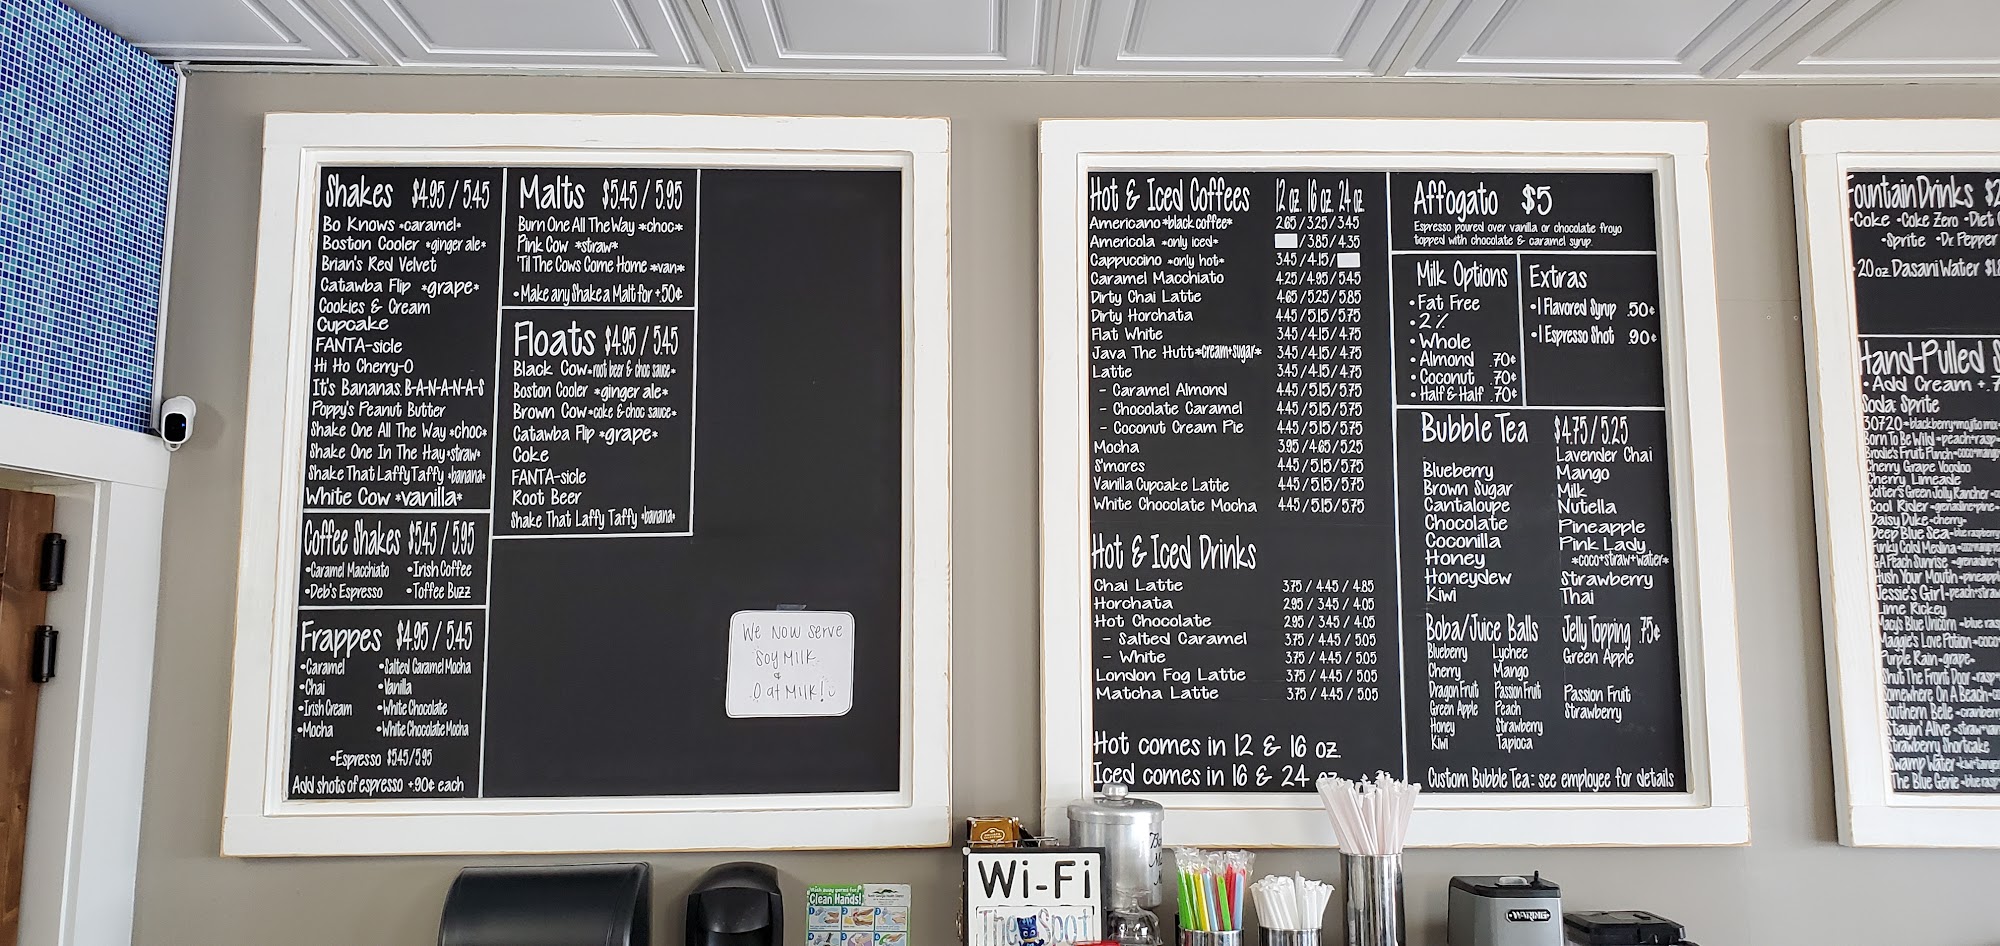 Shakes $4.95 / 5.45
Bo Knows *caramel*
Boston Cooler *ginger ale*
Brian's Red Velvet
Catawba Flip *grape*
Cookies & Cream
Cupcake
FANTA-sicle
Hi Ho Cherry-O
It's Bananas. B-A-N-A-N-A-S
Poppy's Peanut Butter
Shake One All The Way *choc*
Shake One In The Hay *straw*
Shake That Laffy Taffy *banana*
White Cow *vanilla*
Coffee Shakes $5.45 / 5.95
•Caramel Macchiato •Irish Coffee
•Deb's Espresso •Toffee Buzz
Frappes $4.95 / 5.45
•Caramel •Salted Caramel Mocha
•Chai •Vanilla
•Irish Cream •White Chocolate
•Mocha •White Chocolate Mocha
•Espresso $5.45/5.95
Add shots of espresso +.90¢ each
Malts $5.45 / 5.95
Burn One All The Way *choc*
Pink Cow *straw*
'Til The Cows Come Home *van*
•Make any Shake a Malt for +.50¢
Floats $4.95 / 5.45
Black Cow *root beer & choc sauce*
Boston Cooler *ginger ale*
Brown Cow *coke & choc sauce*
Catawba Flip *grape*
Coke
FANTA-sicle
Root Beer
Shake That Laffy Taffy *banana*
We now serve
Soy Milk
&
Oat Milk!
Hot & Iced Coffees 12 oz. 16 oz. 24 oz.
Americano *black coffee* 2.65 / 3.25 / 3.45
Americola *only iced* / 3.85 / 4.35
Cappuccino *only hot* 3.45 / 4.15 /
Caramel Macchiato 4.25 / 4.95 / 5.45
Dirty Chai Latte 4.65 / 5.25 / 5.85
Dirty Horchata 4.45 / 5.15 / 5.75
Flat White 3.45 / 4.15 / 4.75
Java The Hutt *cream+sugar* 3.45 / 4.15 / 4.75
Latte 3.45 / 4.15 / 4.75
- Caramel Almond 4.45 / 5.15 / 5.75
- Chocolate Caramel 4.45 / 5.15 / 5.75
- Coconut Cream Pie 4.45 / 5.15 / 5.75
Mocha 3.95 / 4.65 / 5.25
S'mores 4.45 / 5.15 / 5.75
Vanilla Cupcake Latte 4.45 / 5.15 / 5.75
White Chocolate Mocha 4.45 / 5.15 / 5.75
Hot & Iced Drinks
Chai Latte 3.75 / 4.45 / 4.85
Horchata 2.95 / 3.45 / 4.05
Hot Chocolate 2.95 / 3.45 / 4.05
- Salted Caramel 3.75 / 4.45 / 5.05
- White 3.75 / 4.45 / 5.05
London Fog Latte 3.75 / 4.45 / 5.05
Matcha Latte 3.75 / 4.45 / 5.05
Hot comes in 12 & 16 oz.
Iced comes in 16 & 24 oz.
Affogato $5
Espresso poured over vanilla or chocolate froyo
topped with chocolate & caramel syrup.
Milk Options
•Fat Free
•2%
•Whole
•Almond .70¢
•Coconut .70¢
•Half & Half .70¢
Extras
•1 Flavored Syrup .50¢
•1 Espresso Shot .90¢
Bubble Tea $4.75 / 5.25
Lavender Chai
Blueberry Mango
Brown Sugar Milk
Cantaloupe Nutella
Chocolate Pineapple
Coconilla Pink Lady
Honey *coco+straw+water*
Honeydew Strawberry
Kiwi Thai
Boba/Juice Balls Jelly Topping .75¢
Blueberry Lychee Green Apple
Cherry Mango
Dragon Fruit Passion Fruit Passion Fruit
Green Apple Peach Strawberry
Honey Strawberry
Kiwi Tapioca
Custom Bubble Tea: see employee for details
Fountain Drinks $2
•Coke •Coke Zero •Diet
•Sprite •Dr. Pepper
•20 oz Dasani Water $1.
Hand-Pulled S
•Add Cream +.7
Soda: Sprite
30720 *blackberry+mojito mix
Born To Be Wild *peach+rasp
Brodie's Fruit Punch *coco+mango
Cherry Grape Voodoo
Cherry Limeade
Colter's Green Jolly Rancher
Cool Rider *grenadine+pine
Daisy Duke *cherry*
Deep Blue Sea *blue raspberry
Funky Cold Medina
GA Peach Sunrise *grenadine+p
Hush Your Mouth *pineapple
Jessie's Girl *peach+straw
Lime Rickey
Macy's Blue Unicorn *blue rasp
Maggie's Love Potion *coco
Purple Rain *grape*
Shut The Front Door *rasp
Somewhere On A Beach
Southern Belle *cranberry
Stayin' Alive *straw
Strawberry Shortcake
Swamp Water *kiwi+tangerin
The Blue Genie *blue rasp
Wi-Fi
The Spot
Clean Hands!
WARING